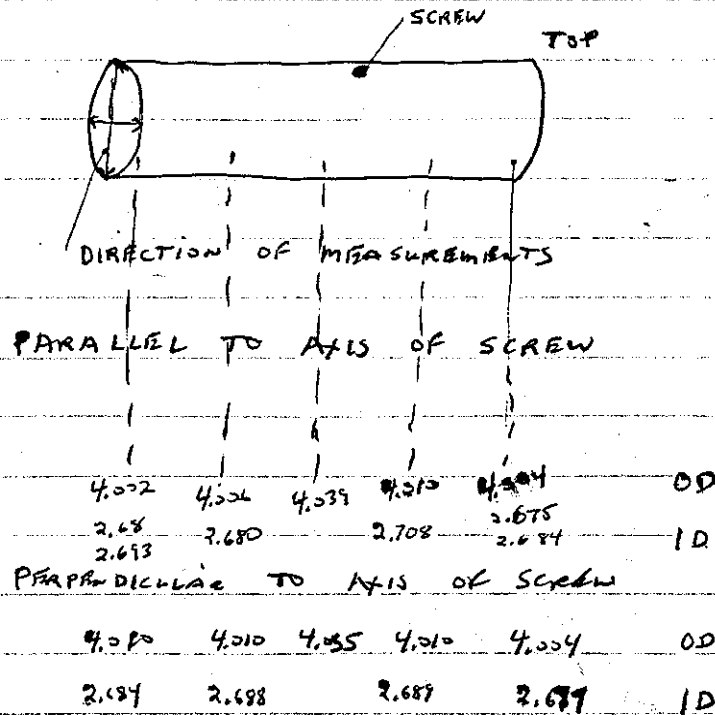 SCREW
TOP
DIRECTION OF MEASUREMENTS
PARALLEL TO AXIS OF SCREW
4.002 4.006 4.039 4.010 OD
2.675
2.68 2.680 2.708 2.684 ID
2.693
PERPENDICULAR TO AXIS OF SCREW
4.010 4.010 4.004 OD
2.684 2.688 2.689 ID